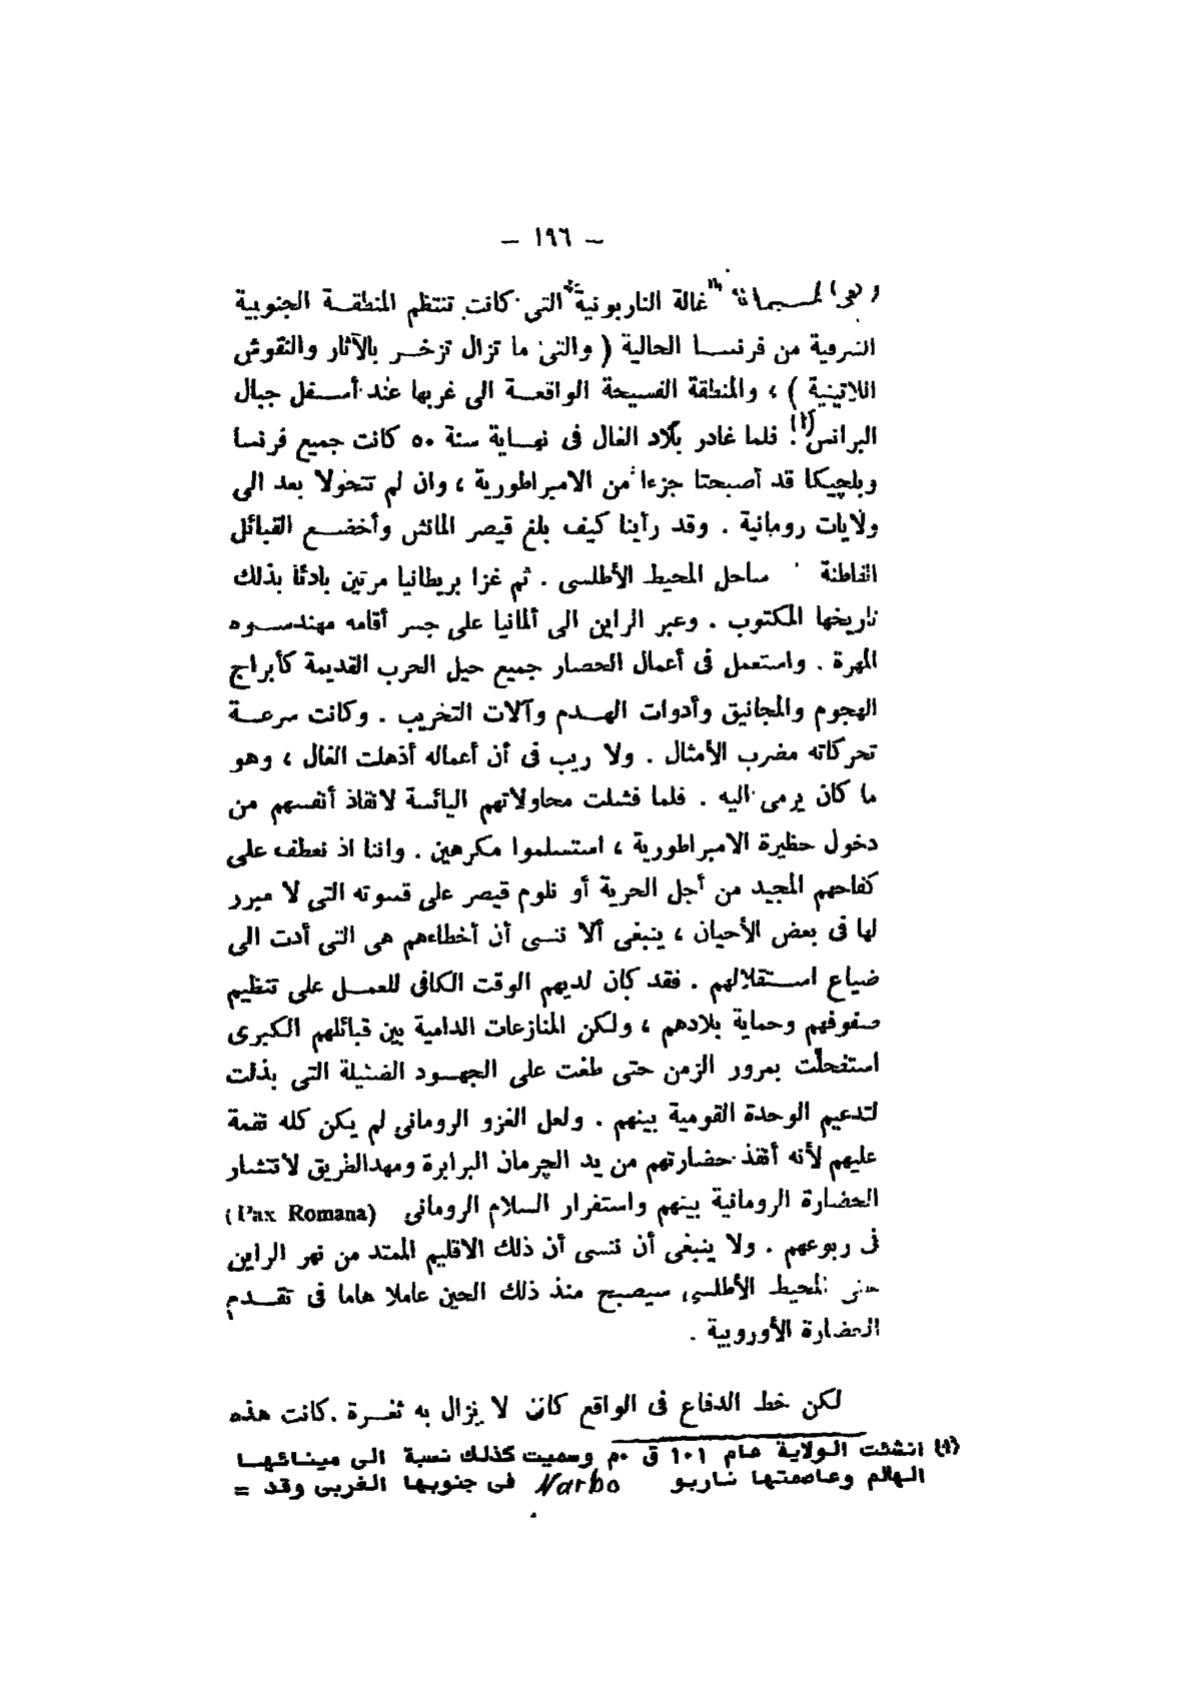 — ١٩٦ —
غالة الناربونية التى كانت تنتظم المنطقة الجنوبية
الشرقية من فرنسا الحالية ( والتى ما تزال تزخر بالآثار والنقوش
اللاتينية ) ، والمنطقة الفسيحة الواقعة الى غربها عند أسفل جبال
البرانس(١). فلما غادر بلاد الغال فى نهاية سنة ٥٠ كانت جميع فرنسا
وبلچيكا قد أصبحتا جزءا من الامبراطورية ، وان لم تتحولا بعد الى
ولايات رومانية . وقد رأينا كيف بلغ قيصر المانش وأخضع القبائل
القاطنة ساحل المحيط الأطلسى . ثم غزا بريطانيا مرتين بادئا بذلك
تاريخها المكتوب . وعبر الراين الى ألمانيا على جسر أقامه مهندسوه
المهرة . واستعمل فى أعمال الحصار جميع حيل الحرب القديمة كأبراج
الهجوم والمجانيق وأدوات الهدم وآلات التخريب . وكانت سرعة
تحركاته مضرب الأمثال . ولا ريب فى أن أعماله أذهلت الغال ، وهو
ما كان يرمى اليه . فلما فشلت محاولاتهم اليائسة لانقاذ أنفسهم من
دخول حظيرة الامبراطورية ، استسلموا مكرهين . واننا اذ نعطف على
كفاحهم المجيد من أجل الحرية أو نلوم قيصر على قسوته التى لا مبرر
لها فى بعض الأحيان ، ينبغى ألا ننسى أن أخطاءهم هى التى أدت الى
ضياع استقلالهم . فقد كان لديهم الوقت الكافى للعمل على تنظيم
صفوفهم وحماية بلادهم ، ولكن المنازعات الدامية بين قبائلهم الكبرى
استفحلت بمرور الزمن حتى طغت على الجهود الضئيلة التى بذلت
لتدعيم الوحدة القومية بينهم . ولعل الغزو الرومانى لم يكن كله نقمة
عليهم لأنه أنقذ حضارتهم من يد الچرمان البرابرة ومهد الطريق لانتشار
الحضارة الرومانية بينهم واستقرار السلام الرومانى (Pax Romana)
فى ربوعهم . ولا ينبغى أن ننسى أن ذلك الاقليم الممتد من نهر الراين
حتى المحيط الأطلسى سيصبح منذ ذلك الحين عاملا هاما فى تقدم
الحضارة الأوروبية .
لكن خط الدفاع فى الواقع كان لا يزال به ثغرة . كانت هذه
(١) انشئت الولاية عام ١٠١ ق ٠م وسميت كذلك نسبة الى مينائها
الهام وعاصمتها ناربو Narbo فى جنوبها الغربى وقد =